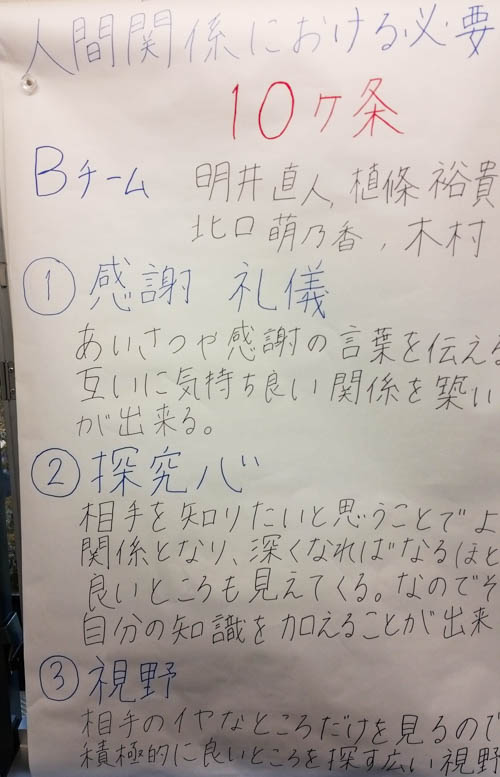 人間関係における必要
10ヶ条
Bチーム 明井直人, 植條裕貴
北口萌乃香, 木村
① 感謝 礼儀
あいさつや感謝の言葉を伝える
互いに気持ち良い関係を築い
が出来る。
② 探究心
相手を知りたいと思うことでよ
関係となり、深くなればなるほど
良いところも見えてくる。なのでそ
自分の知識を加えることが出来
③ 視野
相手のイヤなところだけを見るので
積極的に良いところを探す広い視野